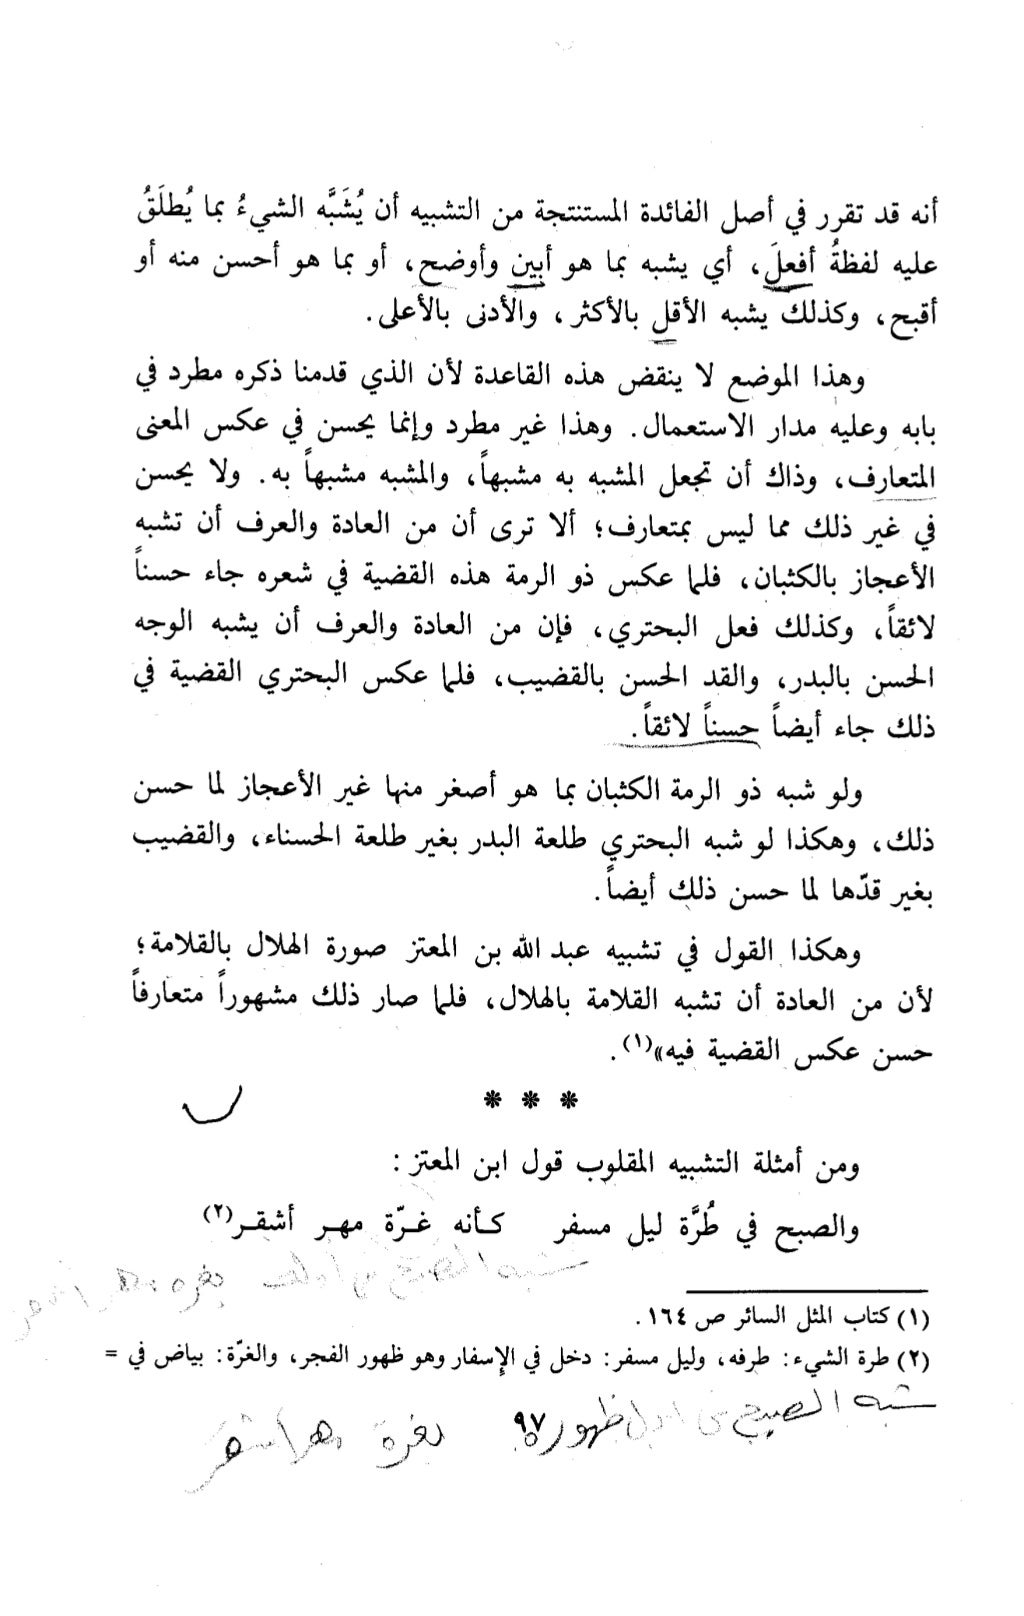 أنه قد تقرر في أصل الفائدة المستنتجة من التشبيه أن يُشَبَّه الشيءُ بما يُطلَقُ
عليه لفظةُ أفعلَ، أي يشبه بما هو أبين وأوضح، أو بما هو أحسن منه أو
أقبح، وكذلك يشبه الأقل بالأكثر، والأدنى بالأعلى.
وهذا الموضع لا ينقض هذه القاعدة لأن الذي قدمنا ذكره مطرد في
بابه وعليه مدار الاستعمال. وهذا غير مطرد وإنما يحسن في عكس المعنى
المتعارف، وذاك أن تجعل المشبه به مشبهاً، والمشبه مشبهاً به. ولا يحسن
في غير ذلك مما ليس بمتعارف؛ ألا ترى أن من العادة والعرف أن تشبه
الأعجاز بالكثبان، فلما عكس ذو الرمة هذه القضية في شعره جاء حسناً
لائقاً، وكذلك فعل البحتري، فإن من العادة والعرف أن يشبه الوجه
الحسن بالبدر، والقد الحسن بالقضيب، فلما عكس البحتري القضية في
ذلك جاء أيضاً حسناً لائقاً.
ولو شبه ذو الرمة الكثبان بما هو أصغر منها غير الأعجاز لما حسن
ذلك، وهكذا لو شبه البحتري طلعة البدر بغير طلعة الحسناء، والقضيب
بغير قدّها لما حسن ذلك أيضاً.
وهكذا القول في تشبيه عبد الله بن المعتز صورة الهلال بالقلامة؛
لأن من العادة أن تشبه القلامة بالهلال، فلما صار ذلك مشهوراً متعارفاً
حسن عكس القضية فيه»(١).
* * *
ومن أمثلة التشبيه المقلوب قول ابن المعتز:
والصبح في طُرَّة ليل مسفر كأنه غرّة مهر أشقر(٢)
شبه الصبح في بغرة مهر أشقر
(١) كتاب المثل السائر ص ١٦٤.
(٢) طرة الشيء: طرفه، وليل مسفر: دخل في الإسفار وهو ظهور الفجر، والغرّة: بياض في =
شبه الصبح في اول ظهوره بغرة مهر أشقر
٩٧